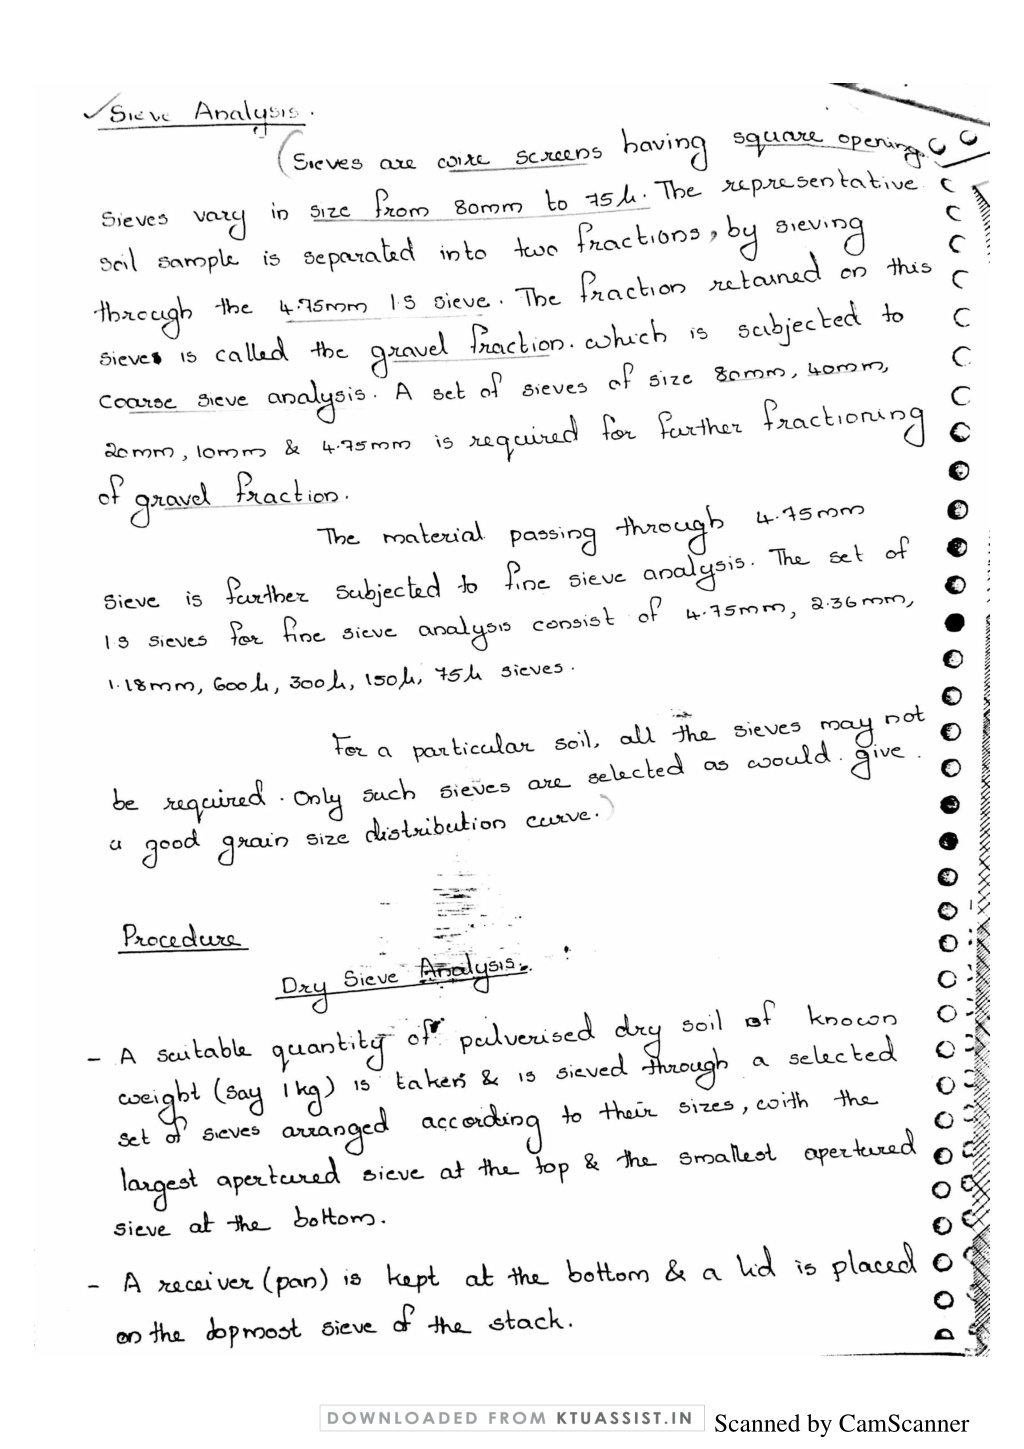 ✓Sieve Analysis.
(Sieves are wire screens having square opening.
Sieves vary in size from 80mm to 75μ. The representative
soil sample is separated into two fractions, by sieving
through the 4.75mm I.S sieve. The fraction retained on this
sieves is called the gravel fraction. which is subjected to
coarse sieve analysis. A set of sieves of size 80mm, 40mm,
20mm, 10mm & 4.75mm is required for further fractioning
of gravel fraction.
The material passing through 4.75mm
sieve is further subjected to fine sieve analysis. The set of
IS sieves for fine sieve analysis consist of 4.75mm, 2.36mm,
1.18mm, 600μ, 300μ, 150μ, 75μ sieves.
For a particular soil, all the sieves may not
be required. Only such sieves are selected as would give
a good grain size distribution curve.)
Procedure
Dry Sieve Analysis.
- A suitable quantity of pulverised dry soil of known
weight (say 1kg) is taken & is sieved through a selected
set of sieves arranged according to their sizes, with the
largest apertured sieve at the top & the smallest apertured
sieve at the bottom.
- A receiver (pan) is kept at the bottom & a lid is placed
on the topmost sieve of the stack.
DOWNLOADED FROM KTUASSIST.IN
Scanned by CamScanner